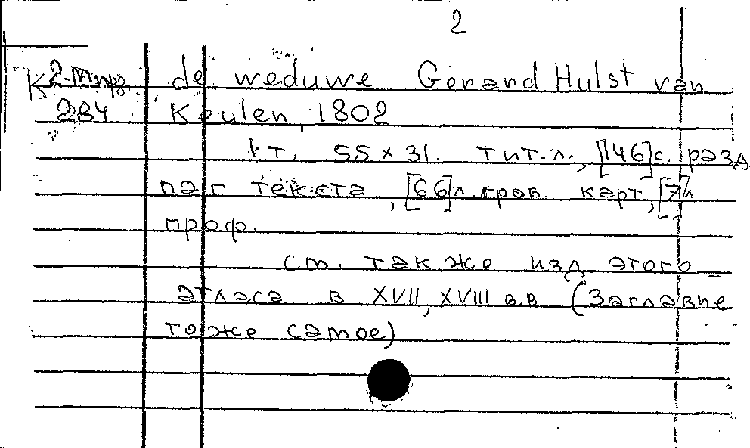 2
de weduwe Gerard Hulst van
284 Keulen, 1802
1 т. 55 x 31. тит. л., [146] с. разд
паг текста, [66] л. грав. карт, [7] л
проф.
см. также изд. этого
атласа в XVII, XVIII в.в (Заглавие
тоже самое)